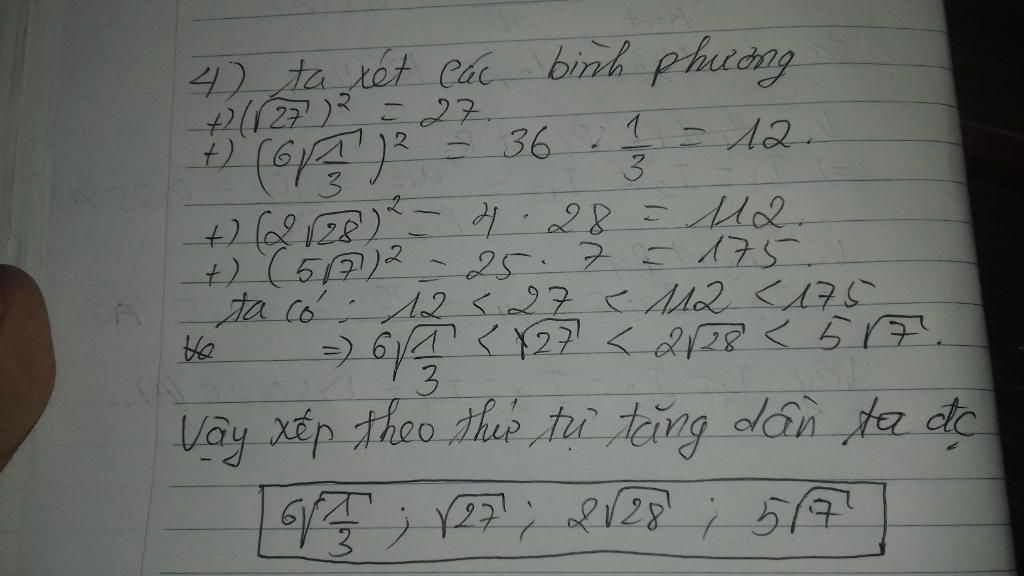 4) ta xét các bình phương
+) (√27)² = 27.
+) (6√1/3)² = 36 · 1/3 = 12.
+) (2√28)² = 4 · 28 = 112.
+) (5√7)² = 25 · 7 = 175.
ta có : 12 < 27 < 112 < 175
=> 6√1/3 < √27 < 2√28 < 5√7.
Vậy xếp theo thứ tự tăng dần ta đc
6√1/3 ; √27 ; 2√28 ; 5√7